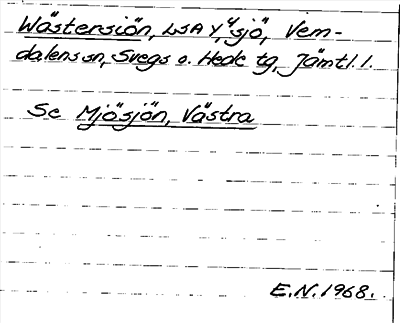 Wästersiön, LSA y, "sjö", Vem-
dalens sn, Svegs o. Hede tg, Jämtl. l.
Se Mjösjön, Västra
E.N. 1968.